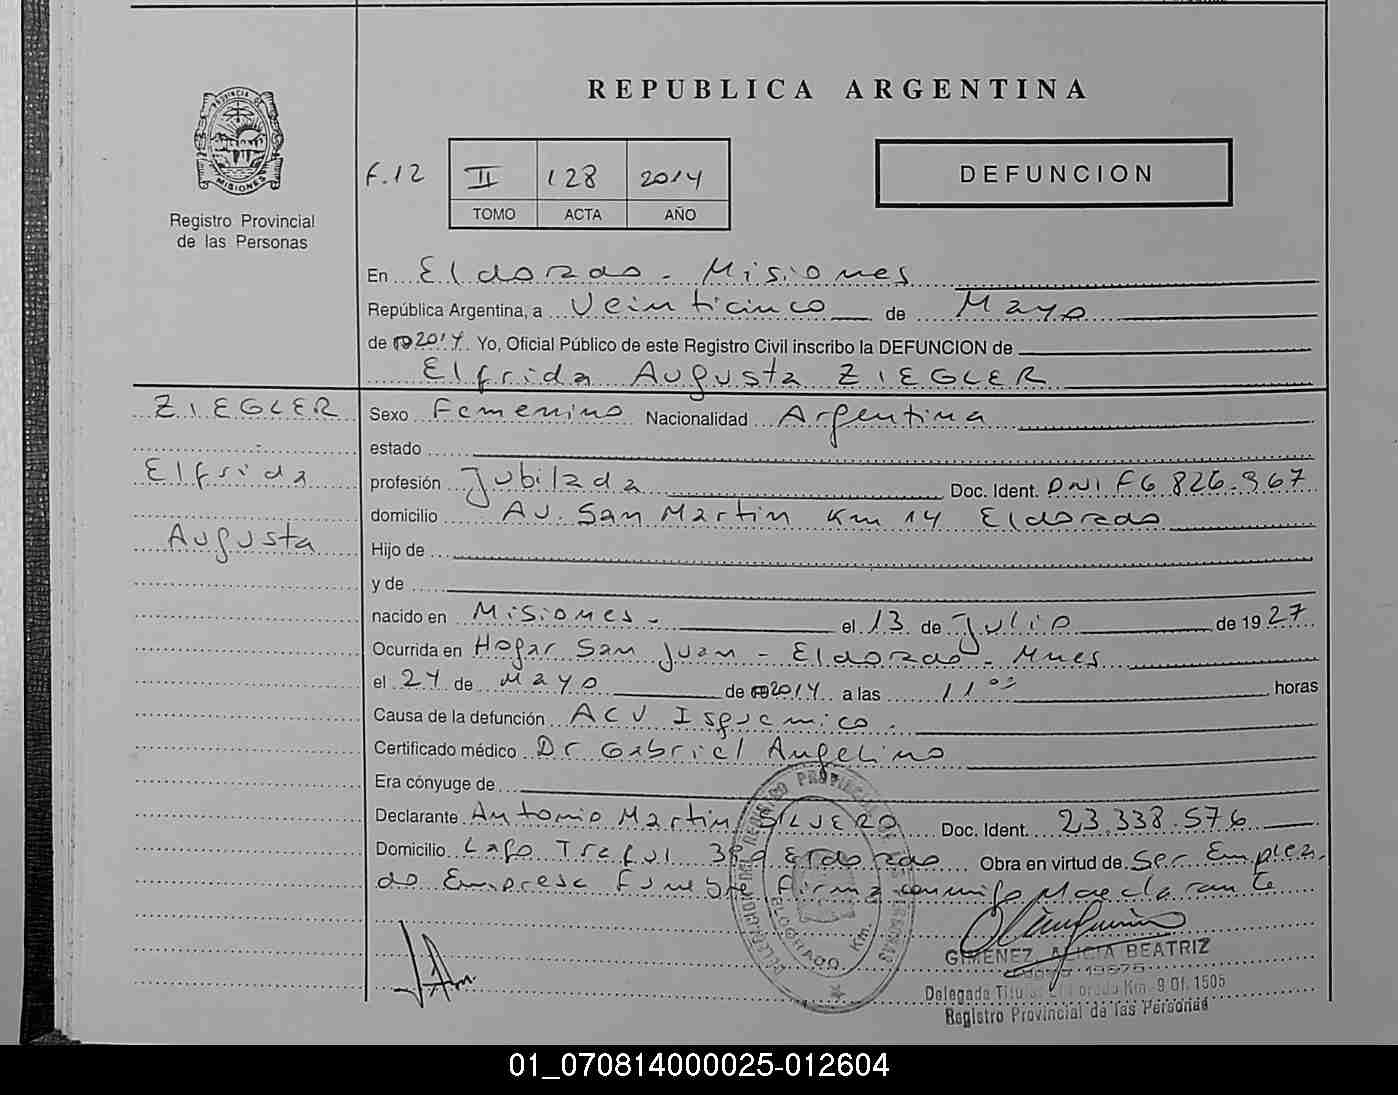 REPUBLICA ARGENTINA
PROVINCIA DE
MISIONES
Registro Provincial
de las Personas
F.12 II 128 2014
TOMO ACTA AÑO
DEFUNCION
En Eldorado - Misiones
República Argentina, a Veinticinco de Mayo
de 2014. Yo, Oficial Público de este Registro Civil inscribo la DEFUNCION de
Elfrida Augusta ZIEGLER
ZIEGLER
Elfrida
Augusta
Sexo Femenino Nacionalidad Argentina
estado
profesión Jubilada Doc. Ident. DNI F6 826.967
domicilio AV. San Martin Km 14 Eldorado
Hijo de
y de
nacido en Misiones - el 13 de Julio de 1927
Ocurrida en Hogar San Juan - Eldorado - Mnes
el 24 de Mayo de 2014 a las 11 00 horas
Causa de la defunción ACV Isquemico.
Certificado médico Dr Gabriel Angelino
Era cónyuge de
Declarante Antonio Martin SILVERO Doc. Ident. 23.338.576
Domicilio Lago Traful 380 Eldorado Obra en virtud de Ser Emplea
do Empresa Funebre firma conmigo el declarante
DELEGACION DEL REGISTRO PROVINCIAL DE LAS PERSONAS
ELDORADO Km.
GIMENEZ, ALICIA BEATRIZ
Delegada Titular Eldorado Km. 9 Of. 1505
Registro Provincial de las Personas
01_070814000025-012604